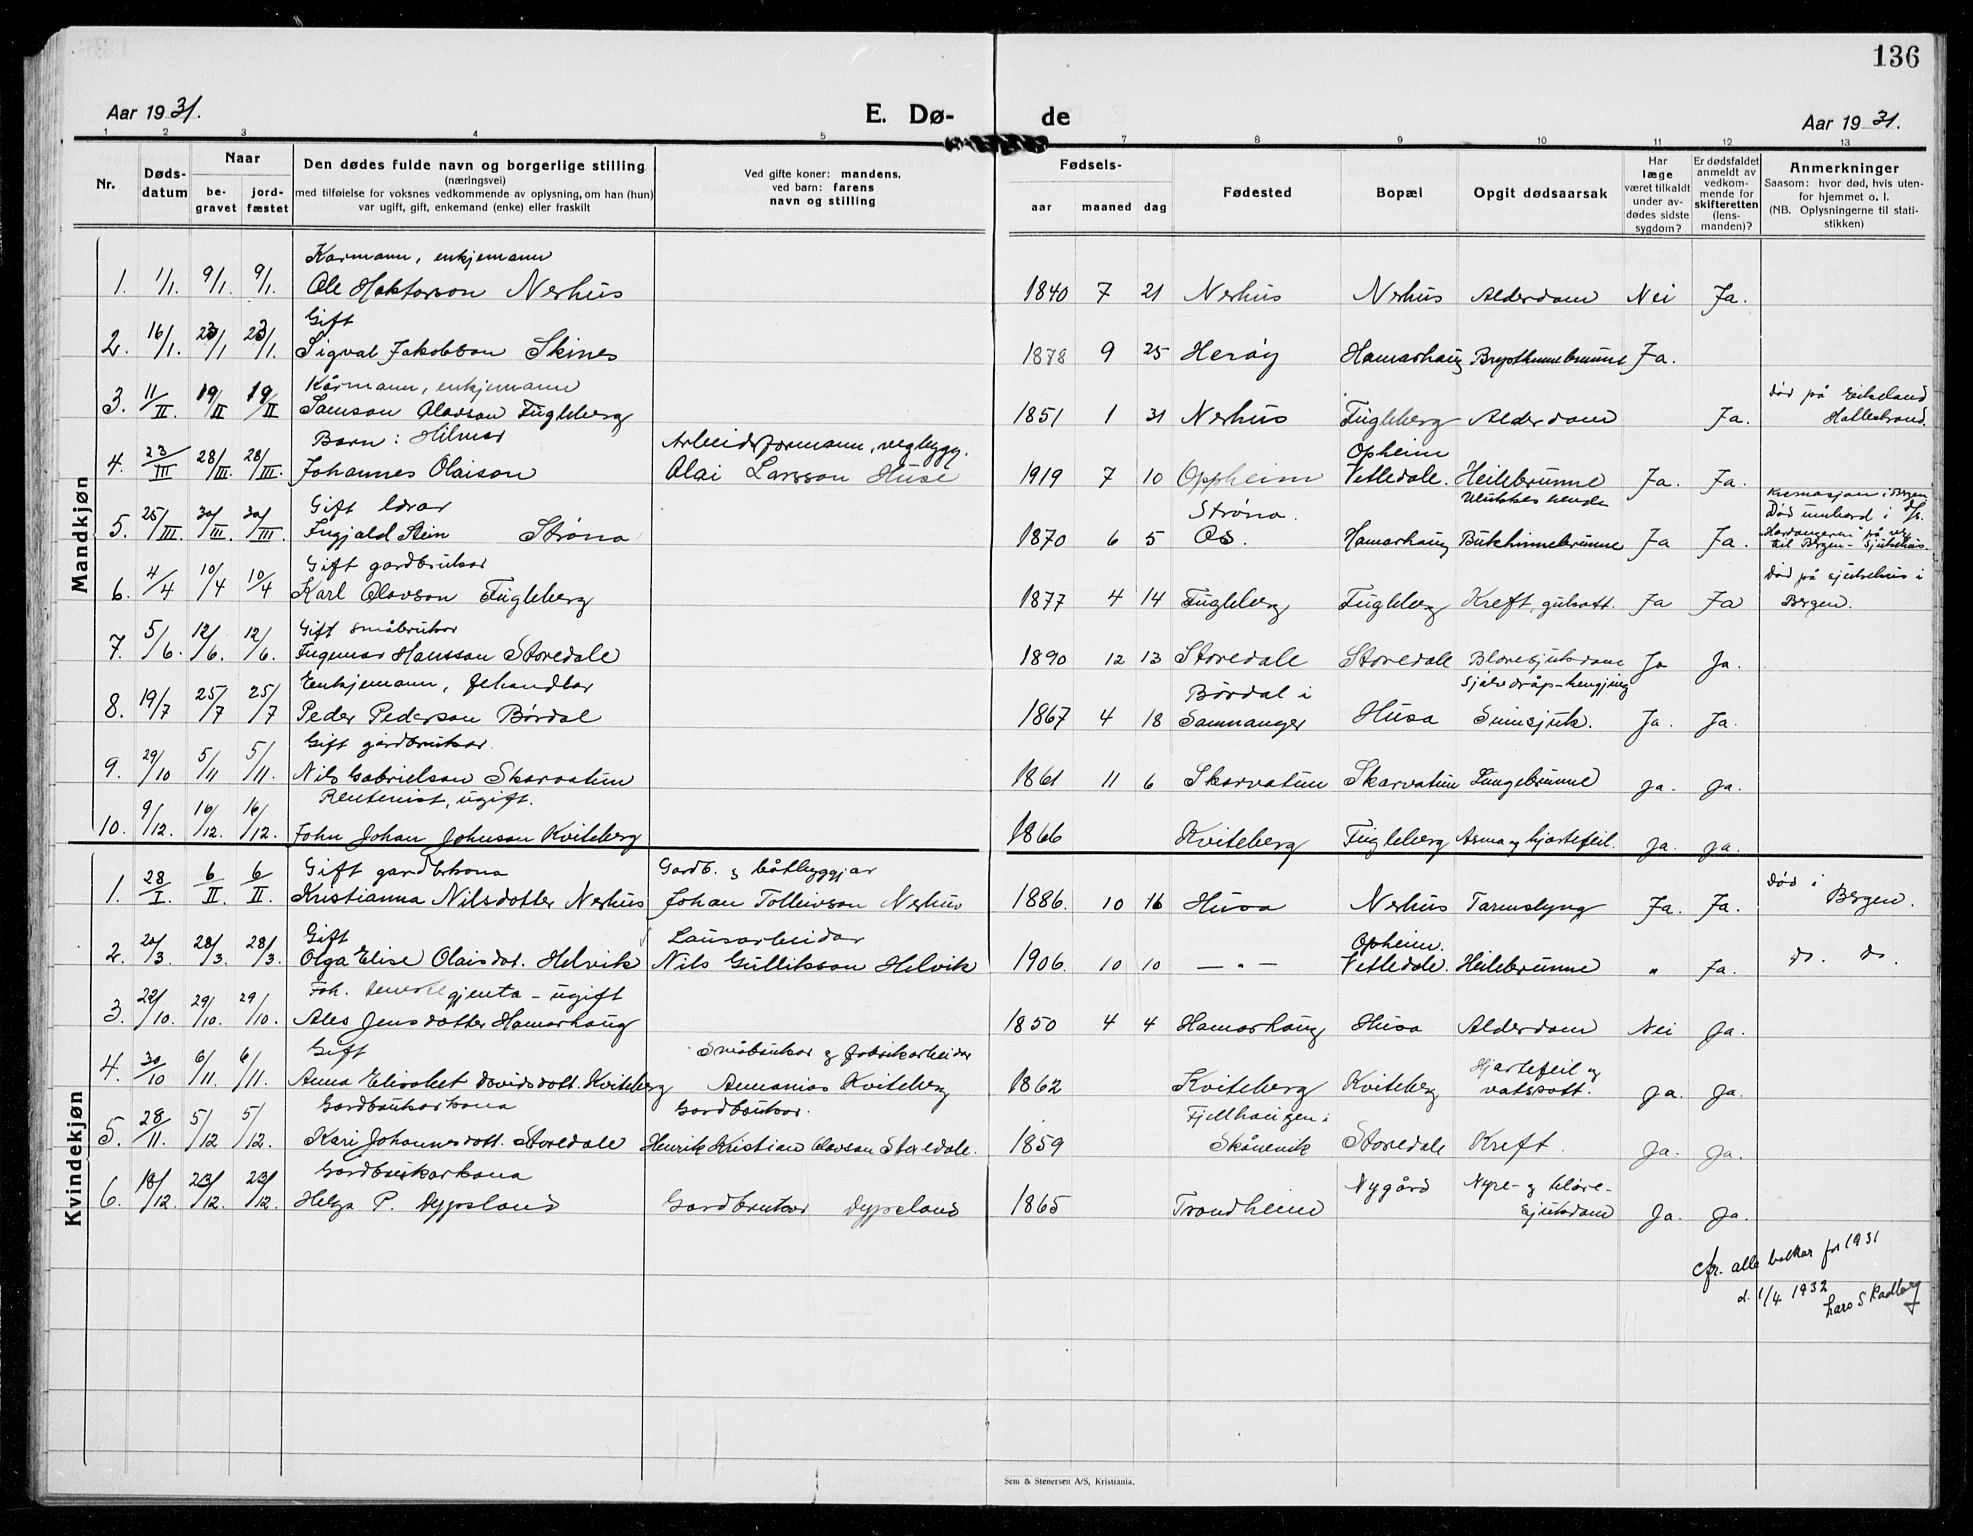 136
Aar 1931. E. Dø- de Aar 1931.
1 2 3 4 5 7 8 9 10 11 12 13
Nr. Døds-datum Naar be-gravet jord-fæstet Den dødes fulde navn og borgerlige stilling (næringsvei) med tilføielse for voksnes vedkommende av oplysning, om han (hun) var ugift, gift, enkemand (enke) eller fraskilt Ved gifte koner: mandens, ved barn: farens navn og stilling Fødsels- aar maaned dag Fødested Bopæl Opgit dødsaarsak Har læge været tilkaldt under av-dødes sidste sygdom? Er dødsfaldet anmeldt av vedkom-mende for skifteretten (lens-manden)? Anmerkninger Saasom: hvor død, hvis uten-for hjemmet o. l. (NB. Oplysningerne til stati-stikken)
Mandkjøn
Karmann, enkjemann
1. 1/1. 9/1. 9/1. Ole Haktorson Nerhus 1840 7 21 Nerhus Nerhus Alderdom Nei Ja.
Gift
2. 16/1. 23/1 23/1. Sigval Jakobson Skines 1878 9 25 Herøy Hamarhaug Brysthinnebrunne Ja.
Kårmann, enkjemann død på Eikeland
3. 11/II. 19/II 19/II Samson Olavson Fugleberg 1851 1 31 Nerhus Fugleberg Alderdom Ja. Hatlestrand.
Barn: Hilmar Arbeidsformann, vegbygg. Opheim
4. 23/III 28/III. 28/III. Johannes Olaison Olai Larsson Huse 1919 7 10 Oppheim Vetledale. Heilebrunne Ja. Ja.
Gift lærar Strøno. Kremasjon i Bergen Død umbord i D/S.
5. 25/III. 30/III. 30/III. Ingjald Stein Strøno 1870 6 5 Os. Hamarhaug Bukhinnebrunne Ja Ja. Hardangeren på veg til Bergen - Sjukehus.
Gift gardbrukar Død på sjukehus i
6. 4/4 10/4 10/4 Karl Olavson Fugleberg 1877 4 14 Fugleberg Fugleberg Kreft, gulsott. Ja Ja Bergen.
Gift småbrukar
7. 5/6. 12/6. 12/6. Ingemar Hansson Storedale 1890 12 13 Storedale Storedale Blæresjukdom Ja Ja.
Enkjemann, fehandlar Børdal i Sjølvdråp-hengjing
8. 19/7 25/7 25/7 Peder Pederson Børdal 1867 4 18 Samnanger Husa Sinnsjuk. Ja. Ja.
Gift gardbrukar.
9. 29/10 5/11 5/11. Nils Gabrielson Skarvatun 1861 11 6 Skarvatun Skarvatun Lungebrunne Ja. Ja.
Rentenist, ugift.
10. 9/12. 16/12. 16/12. John Johan Johnson Kviteberg 1866 Kviteberg Fugleberg Asma og hjartefeil. Ja. Ja.
Kvindekjøn
Gift gardbrkona Gardb. & båtbyggjar Død i
1. 28/I. 6/II. 6/II. Kristianna Nilsdotter Nerhus Johan Tolleivson Nerhus 1886. 10 16 Husa Nerhus Tarmslyng Ja. Ja. Bergen.
Gift Lausarbeidar Opheim.
2. 20/3. 28/3. 28/3. Olga Elise Olaisdot. Helvik Nils Gulliksson Helvik 1906. 10 10 — " — Vetledale. Heilebrunne " Ja. Do. Do.
Foh. tenestegjenta - ugift
3. 22/10. 29/10. 29/10. Ales Jensdotter Hamarhaug 1850 4 4 Hamarhaug Husa Alderdom Nei Ja.
Gift Småbrukar & fabrikarbeidar Hjartefeil og
4. 30/10 6/11. 6/11. Anna Elisabet Davidsdott. Kviteberg Annanias Kviteberg 1862 Kviteberg Kviteberg vatsott. Ja. Ja.
Gardbrukarkona Gardbrukar. Fjellhaugen i
5. 28/11. 5/12 5/12. Kari Johannesdott. Storedale Henrik Kristian Olavson Storedale. 1859 Skånevik Storedale Kreft. Ja. Ja.
Gardbrukarkona Nygård Nyre- & blære-
6. 18/12. 23/12. 23/12. Helga P. Dypsland Gardbrukar Dypsland 1865 Trondheim sjukdom Ja. Ja.
cfr. alle bolkar for 1931
d. 1/4 1932
Lars S Kadberg
Sem & Stenersen A/S, Kristiania.